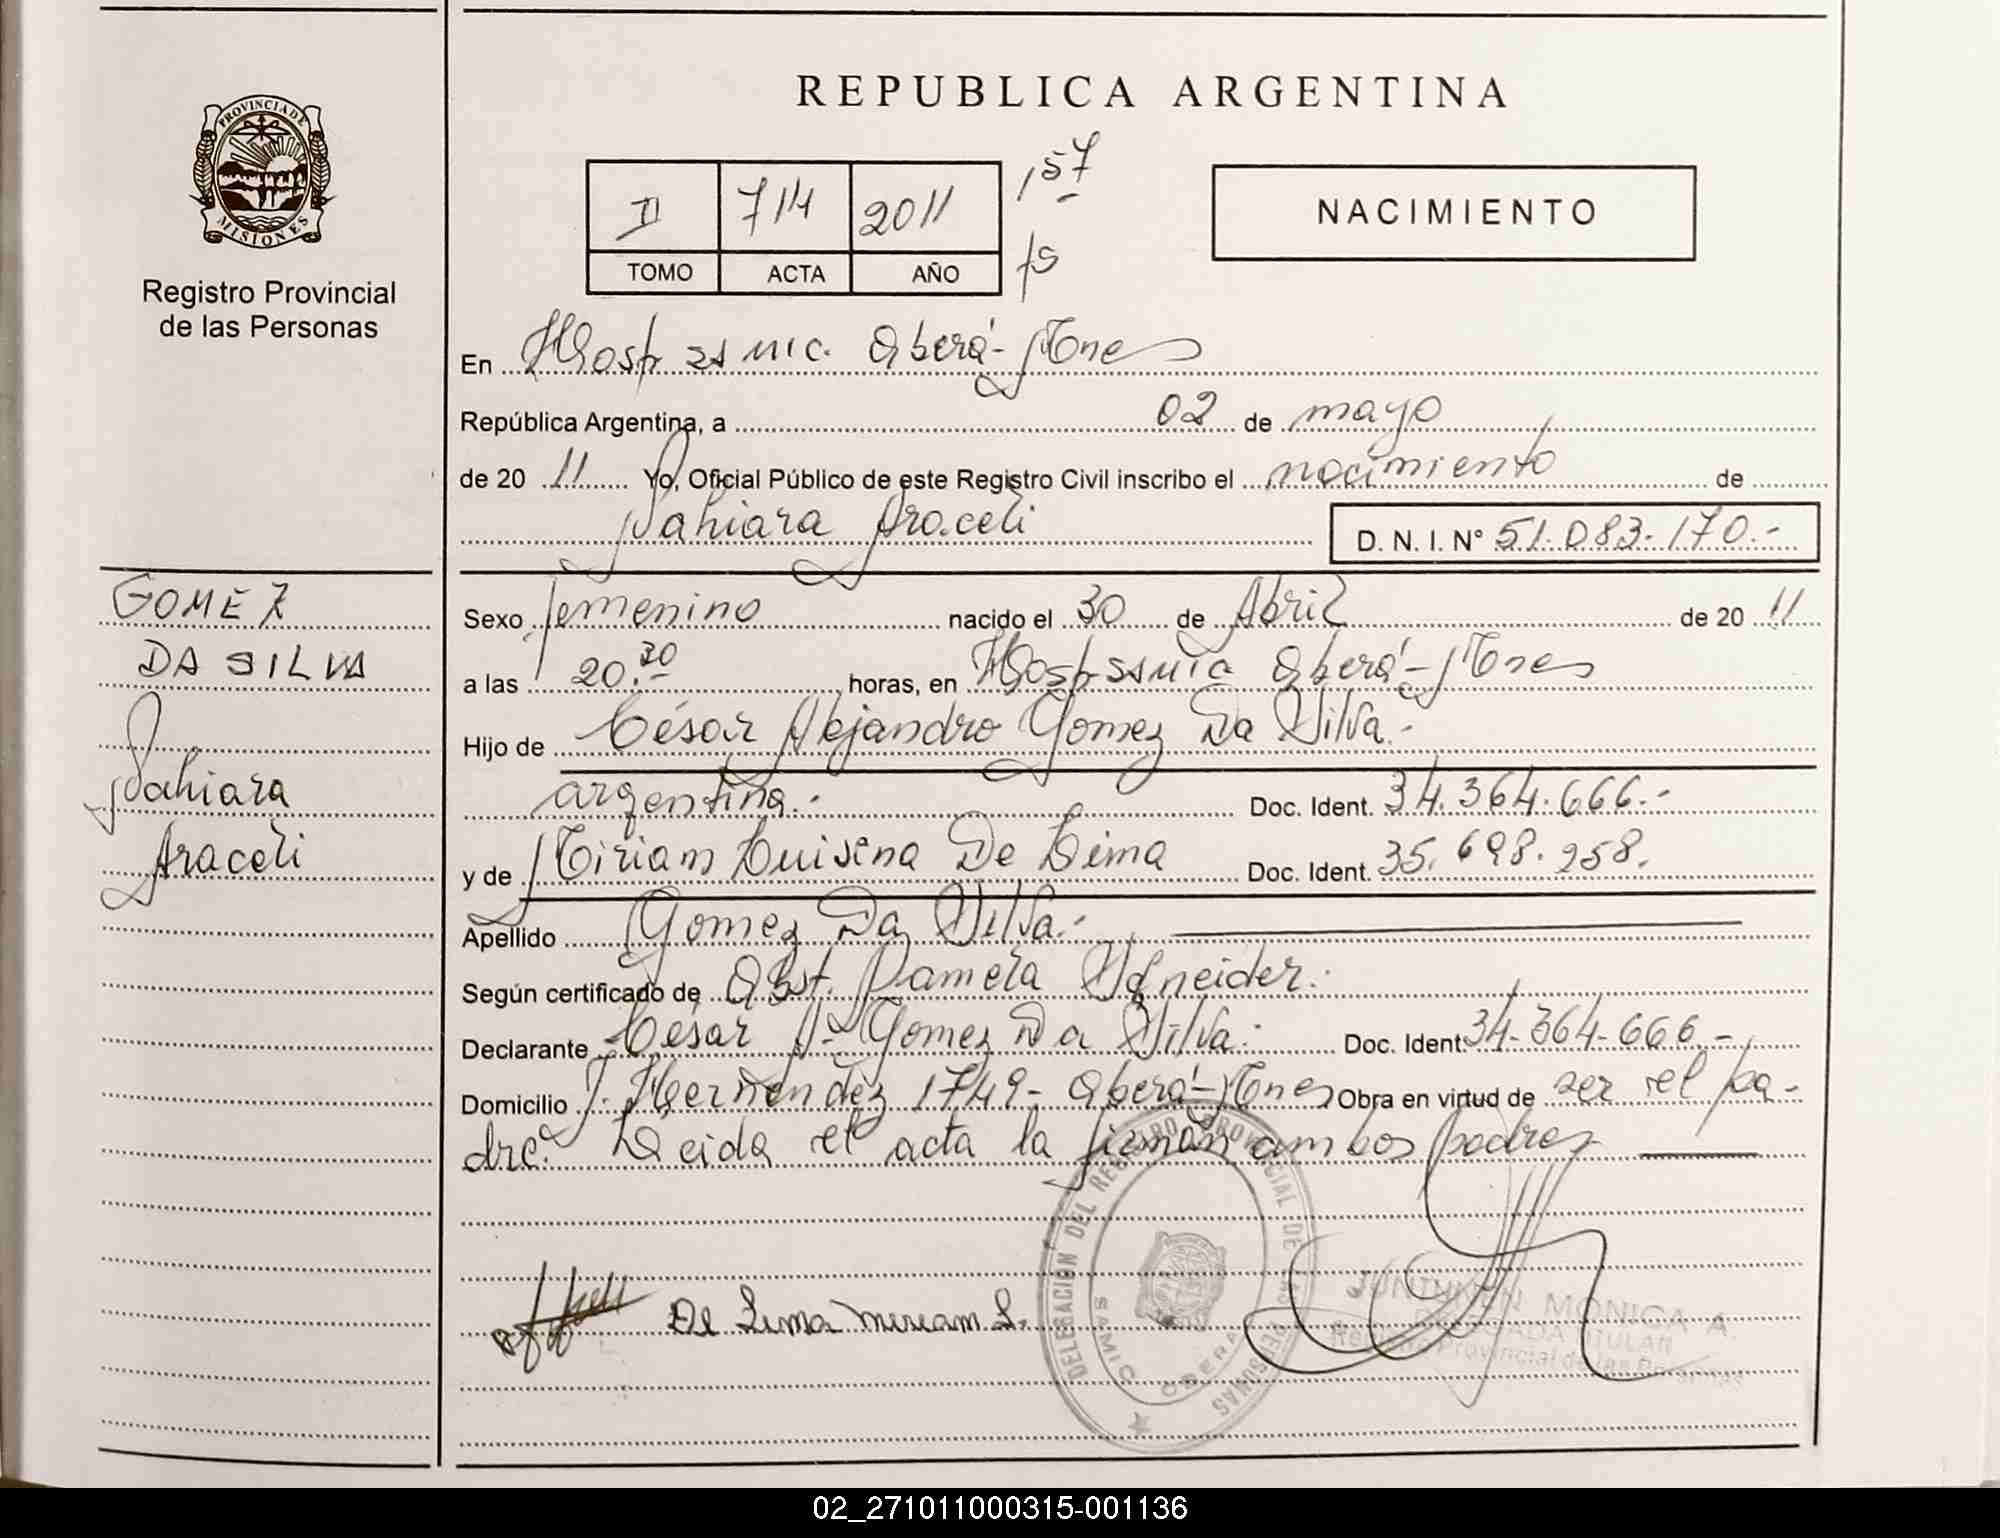 REPUBLICA ARGENTINA
PROVINCIA DE
MISIONES
Registro Provincial
de las Personas
II 714 2011
TOMO ACTA AÑO
157
fs
NACIMIENTO
En Hosp. Samic. Oberá- Mnes
República Argentina, a 02 de mayo
de 20 11 Yo, Oficial Público de este Registro Civil inscribo el nacimiento de
Sahiara Araceli
D. N. I. N° 51.083.170.-
GOMEZ
DA SILVA
Sahiara
Araceli
Sexo femenino nacido el 30 de Abril de 20 11
a las 20.30 horas, en Hosp Samic Oberá- Mnes
Hijo de César Alejandro Gomez Da Silva.-
argentina.- Doc. Ident. 34.364.666.-
y de Miriam Luisena De Lima Doc. Ident. 35.698.958.
Apellido Gomez Da Silva.-
Según certificado de Obst. Pamela Schneider.
Declarante César A- Gomez Da Silva. Doc. Ident. 34-364-666.-
Domicilio J. Hernández 1749- Oberá- Mnes Obra en virtud de ser el pa-
dre. Leida el acta la firman ambos padres
De Lima Miriam L.
DELEGACION DEL REGISTRO PROVINCIAL DE LAS PERSONAS
SAMIC OBERA
JUNTUNEN MONICA A.
DELEGADA TITULAR
Registro Provincial de las Personas
02_271011000315-001136